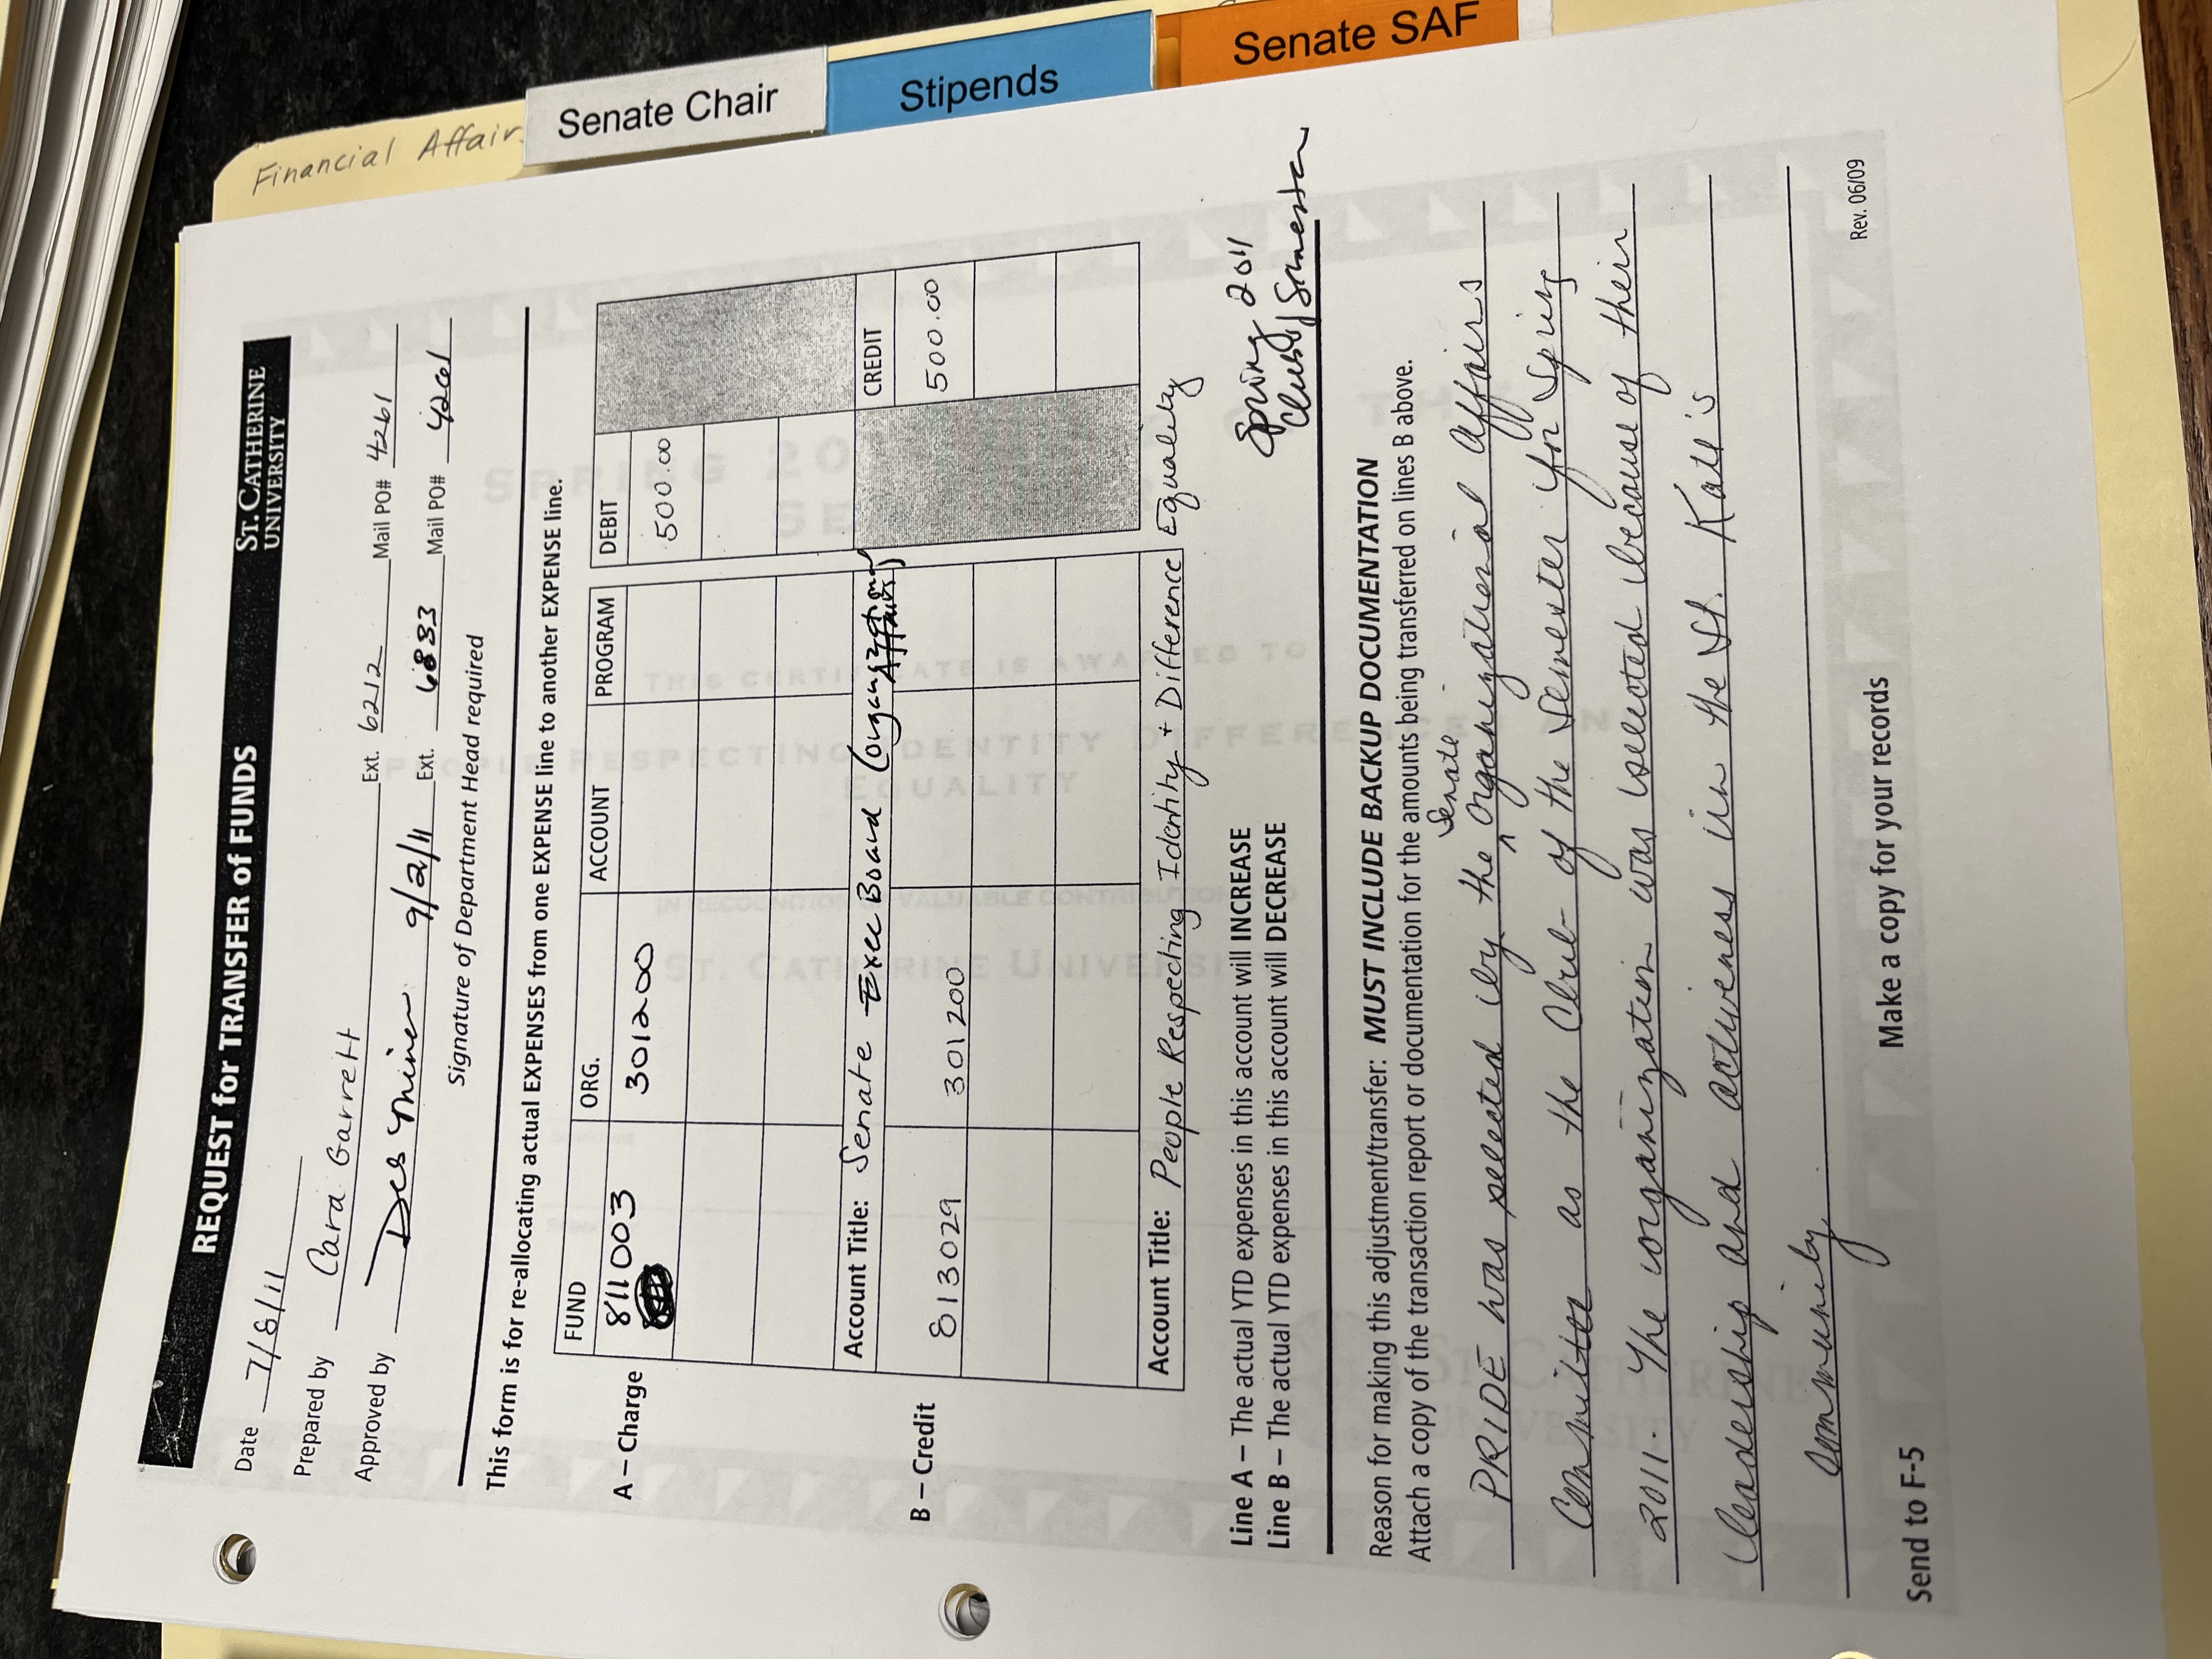 REQUEST for TRANSFER of FUNDS
ST. CATHERINE
UNIVERSITY
Date 7/8/11
Prepared by Cara Garrett Ext. 6212 Mail PO# 4261
Approved by 9/2/11 Ext. 6883 Mail PO# 4261
Signature of Department Head required
This form is for re-allocating actual EXPENSES from one EXPENSE line to another EXPENSE line.
FUND ORG. ACCOUNT PROGRAM DEBIT
A – Charge 811003 301200 500.00
Account Title: Senate Exec Board (Organizational
Affairs)
CREDIT
B – Credit 813029 301200 500.00
Account Title: People Respecting Identity + Difference Equality
Line A – The actual YTD expenses in this account will INCREASE
Line B – The actual YTD expenses in this account will DECREASE
Spring 2011
Club of Semester
Reason for making this adjustment/transfer: MUST INCLUDE BACKUP DOCUMENTATION
Attach a copy of the transaction report or documentation for the amounts being transferred on lines B above.
Senate
PRIDE was selected by the Organizational Affairs
Committee as the Club of the Semester for Spring
2011. The organization was selected because of their
leadership and activeness in the St. Kate's
community
Rev. 06/09
Make a copy for your records
Send to F-5
Financial Affair
Senate Chair
Stipends
Senate SAF